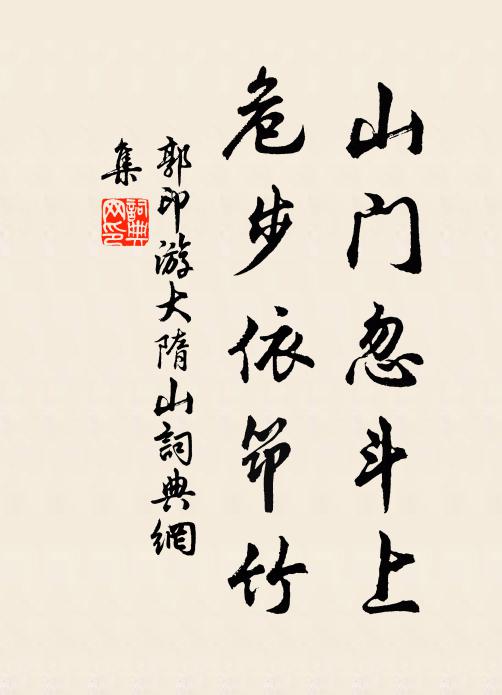 山门忽斗上
危步依筇竹
郭印游大隋山詞典網
集
詞典
网印